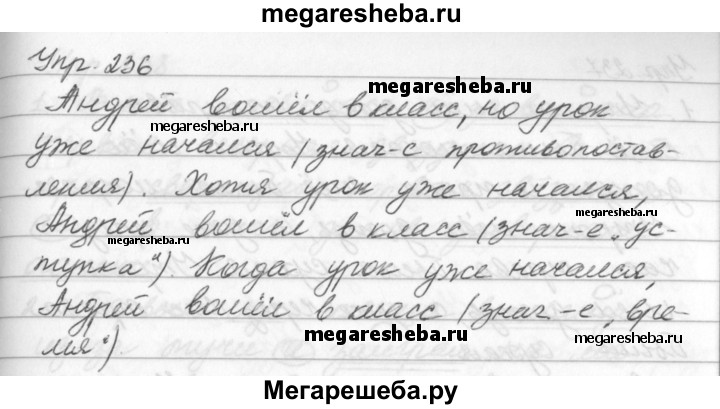 megaresheba.ru
Упр. 236
megaresheba.ru
Андрей вошёл в класс, но урок
megaresheba.ru
уже начался (знач-е противопостав-
ления). Хотя урок уже начался,
megaresheba.ru
Андрей вошёл в класс (знач-е „ус-
megaresheba.ru
тупка“). Когда урок уже начался,
Андрей вошёл в класс (знач-е „вре-
megaresheba.ru
мя“).
Мегарешеба.ру